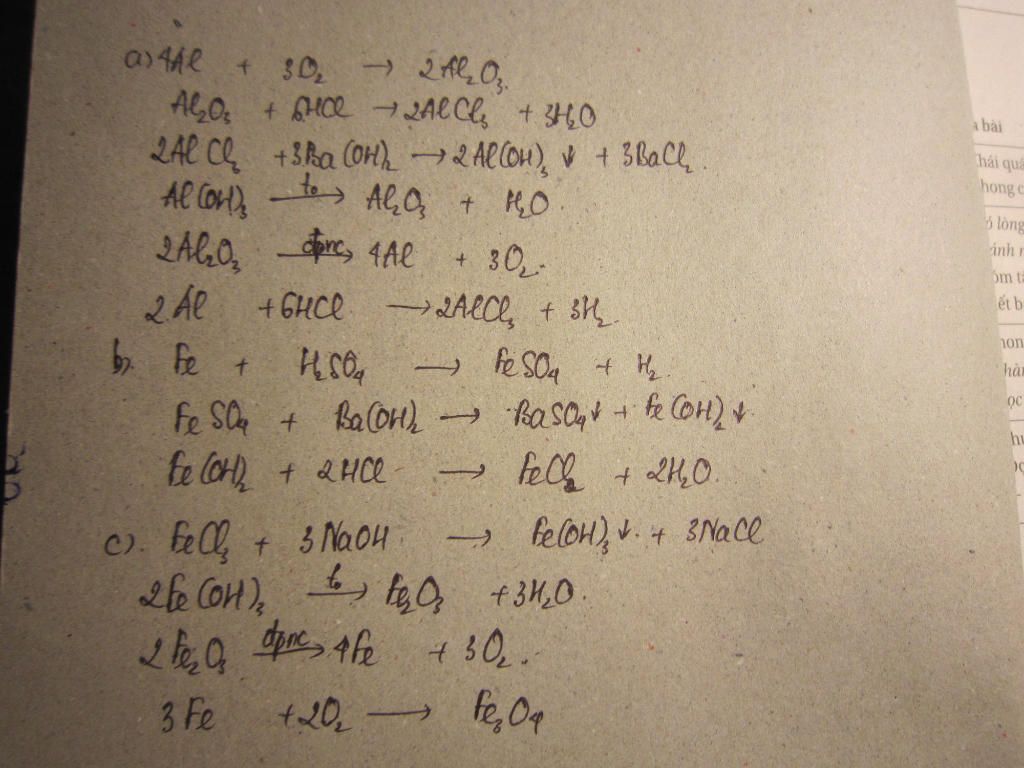 a) 4Al + 3O₂ → 2Al₂O₃.
Al₂O₃ + 6HCl → 2AlCl₃ + 3H₂O
2AlCl₃ + 3Ba(OH)₂ → 2Al(OH)₃ ↓ + 3BaCl₂.
Al(OH)₃ —t°→ Al₂O₃ + H₂O.
2Al₂O₃ —đpnc→ 4Al + 3O₂.
2Al + 6HCl → 2AlCl₃ + 3H₂.
b). Fe + H₂SO₄ → FeSO₄ + H₂.
FeSO₄ + Ba(OH)₂ → BaSO₄↓ + Fe(OH)₂↓.
Fe(OH)₂ + 2HCl → FeCl₂ + 2H₂O.
c). FeCl₃ + 3NaOH → Fe(OH)₃↓. + 3NaCl
2Fe(OH)₃ —t°→ Fe₂O₃ + 3H₂O.
2Fe₂O₃ —đpnc→ 4Fe + 3O₂.
3Fe + 2O₂ → Fe₃O₄
bài
hái quá
hong c
ó lòng
ánh
óm t
ết b